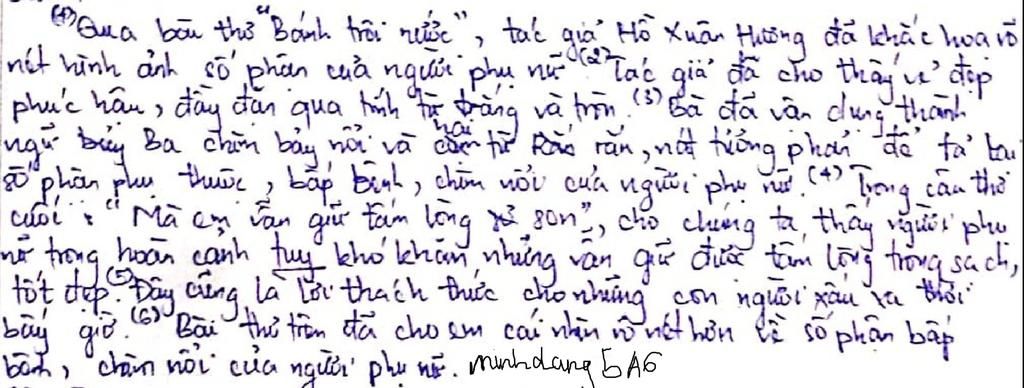 (1) Qua bài thơ "Bánh trôi nước", tác giả Hồ Xuân Hương đã khắc hoạ rõ
nét hình ảnh số phận của người phụ nữ (2) Tác giả đã cho thấy vẻ đẹp
phúc hậu, đầy đặn qua tính từ trắng và tròn. (3) Bà đã vận dụng thành
ngữ Ba chìm bảy nổi và hai từ rắn, nát tương phản để tả lại
số phận phụ thuộc, bấp bênh, chìm nổi của người phụ nữ. (4) Trong câu thơ
cuối: "Mà em vẫn giữ tấm lòng son", cho chúng ta thấy người phụ
nữ trong hoàn cảnh tuy khó khăn nhưng vẫn giữ được tấm lòng trong sạch,
tốt đẹp. (5) Đây cũng là lời thách thức cho những con người xấu xa thời
bấy giờ. (6) Bài thơ trên đã cho em cái nhìn rõ nét hơn về số phận bấp
bênh, chìm nổi của người phụ nữ. minhdang 5A6